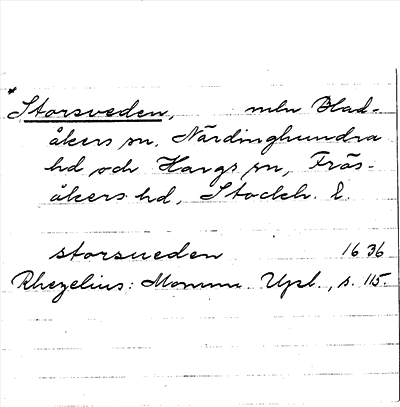 *Storsveden, mln Blad-
åkers sn, Närdinghundra
hd och Hargs sn, Frös-
åkers hd, Stockh. l.
storsueden 1636
Rhezelius: Monum. Upl., s. 115.